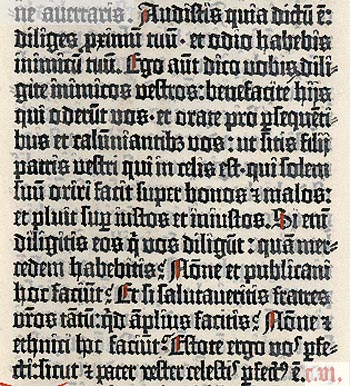 ne auertaris. Audistis quia dictū ē:
diliges ꝓximū tuū· et odio habebis
inimicū tuū. Ego aūt dico vobis dili-
gite inimicos vestros: benefacite hijs
qui oderūt vos· et orate pro ꝑsequēti-
bus et calūniantibꝫ vos: ut sitis filij
patris vestri qui in celis est· qui solem
suū oriri facit super bonos ⁊ malos:
et pluit suꝑ iustos et iniustos. Si enī
diligitis eos q̄ vos diligūt: quā mer-
cedem habebitis? Nōne et publicani
hoc faciūt? Et si salutaueritis fratres
vr̄os tātū: qd̄ āplius facitis? Nōne ⁊
ethnici hoc faciūt? Estote ergo vos ꝑfe-
cti: sicut ⁊ pater vester celestis ꝑfectꝰ ē.